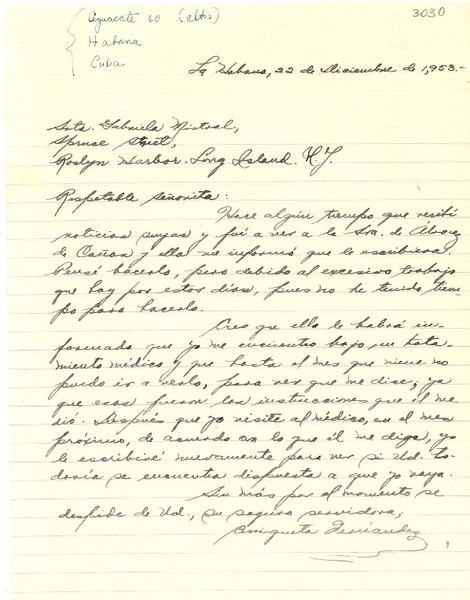 3030
Aguacate 60 (altos)
Habana
Cuba
La Habana, 22 de Diciembre de 1,953.-
Srta. Gabriela Mistral,
Spruce Street,
Roslyn Harbor. Long Island. N.Y.
Respetable señorita:
Hace algún tiempo que recibí
noticias suyas y fuí a ver a la Sra. de Álvarez
de Cañas y ella me informó que le escribiera.
Pensé hacerlo, pero debido al excesivo trabajo
que hay por estos días, pues no he tenido tiem-
po para hacerlo.
Creo que ella le habrá in-
formado que yo me encuentro bajo un trata-
miento médico y que hasta el mes que viene no
puedo ir a verlo, para ver que me dice; ya
que esas fueron las instrucciones que él me
dió. Después que yo visite al médico, en el mes
próximo, de acuerdo con lo que él me diga, yo
le escribiré nuevamente para ver si Ud. to-
davía se encuentra dispuesta a que yo vaya.
Sin más por el momento se
despide de Ud., su segura servidora,
Enriqueta Fernández